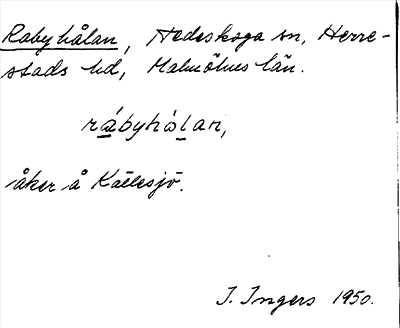 Rabyhålan, Hedeskoga sn, Herre-
stads hd, Malmöhus län.
rábyhålan,
åker å Källesjö.
I. Ingers 1950.